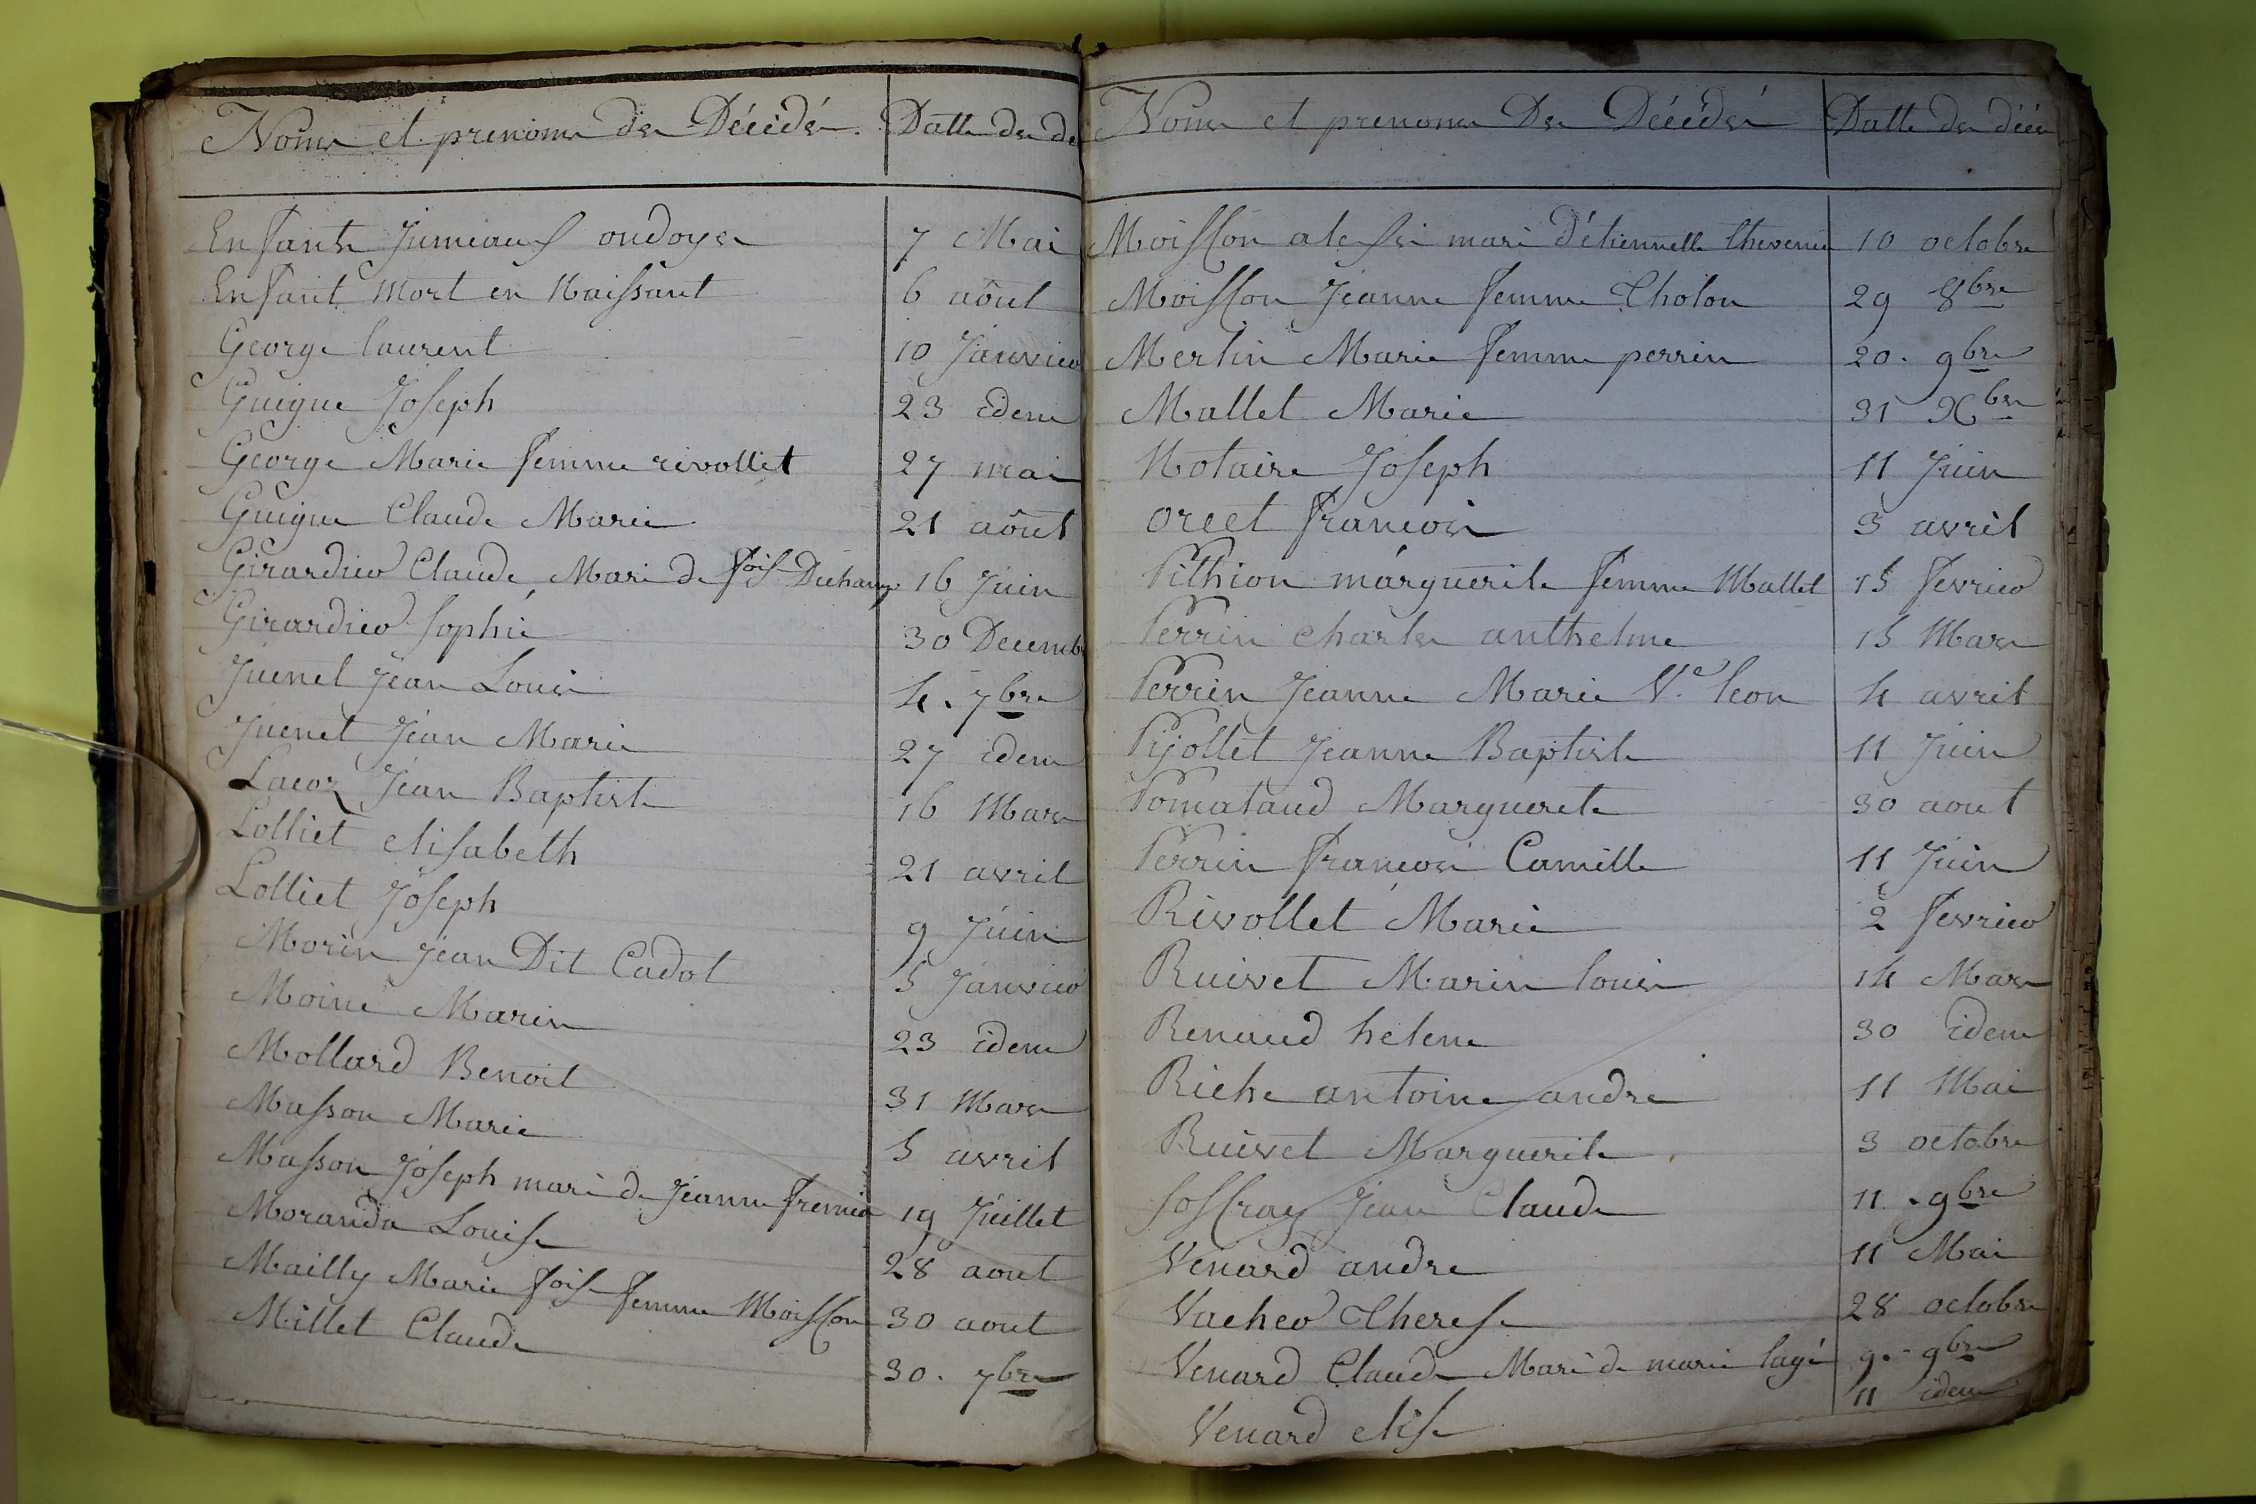 Noms et prenoms des Décédés. Datte des dé
Enfants Jumeaux ondoyes 7 Mai
Enfant Mort en Naissant 6 aôut
George laurent 10 Janvier
Guigue Joseph 23 idem
George Marie femme rivollet 27 mai
Guigue Claude Marie 21 aôut
Girardier Claude, Mari de fois Duchamp 16 Juin
Girardier Sophie 30 Decemb
Juenet Jean Louis 4. 7bre
Juenet Jean Marie 27 idem
Lacoz Jean Baptiste 16 Mars
Lolliet elisabeth 21 avril
Lolliet Joseph 9 Juin
Morin Jean Dit Cadot 5 Janvier
Moine Marin 23 idem
Mollard Benoit 31 Mars
Masson Marie 5 avril
Masson Joseph mari de Jeanne fremion 19 Juillet
Moranda Louise 28 aout
Mailly Marie foise femme Moisson 30 aout
Millet Claude 30. 7bre
Noms et prenoms Des Décédés Datte des décé
Moisson alexsi mari d'étiennette thevenin 10 octobre
Moisson Jeanne femme Cholon 29 8bre
Merlin Marie femme perrin 20. 9bre
Mallet Marie 31 Xbre
Notaire Joseph 11 Juin
orcet francois 3 avril
Pithion márguerite femme Mallet 15 fevrier
Perrin charles anthelme 15 Mars
Perrin Jeanne Marie Ve. leon 4 avril
Pijollet Jeanne Baptiste 11 Juin
Pomataud Marguerete 30 aout
Perrin francois Camille 11 Juin
Rivollet Marie 2 fevrier
Ruivet Marin louis 14 Mars
Renaud helene 30 idem
Riche antoine andre 11 Mai
Ruivet Marguerite 3 octobre
Soffray Jean Claude 11. 9bre
Venard andre 11 Mai
Vacher Therese 28 octobre
Venard Claude Mari de marie lagé 9. 9bre
Venard elise 11 idem